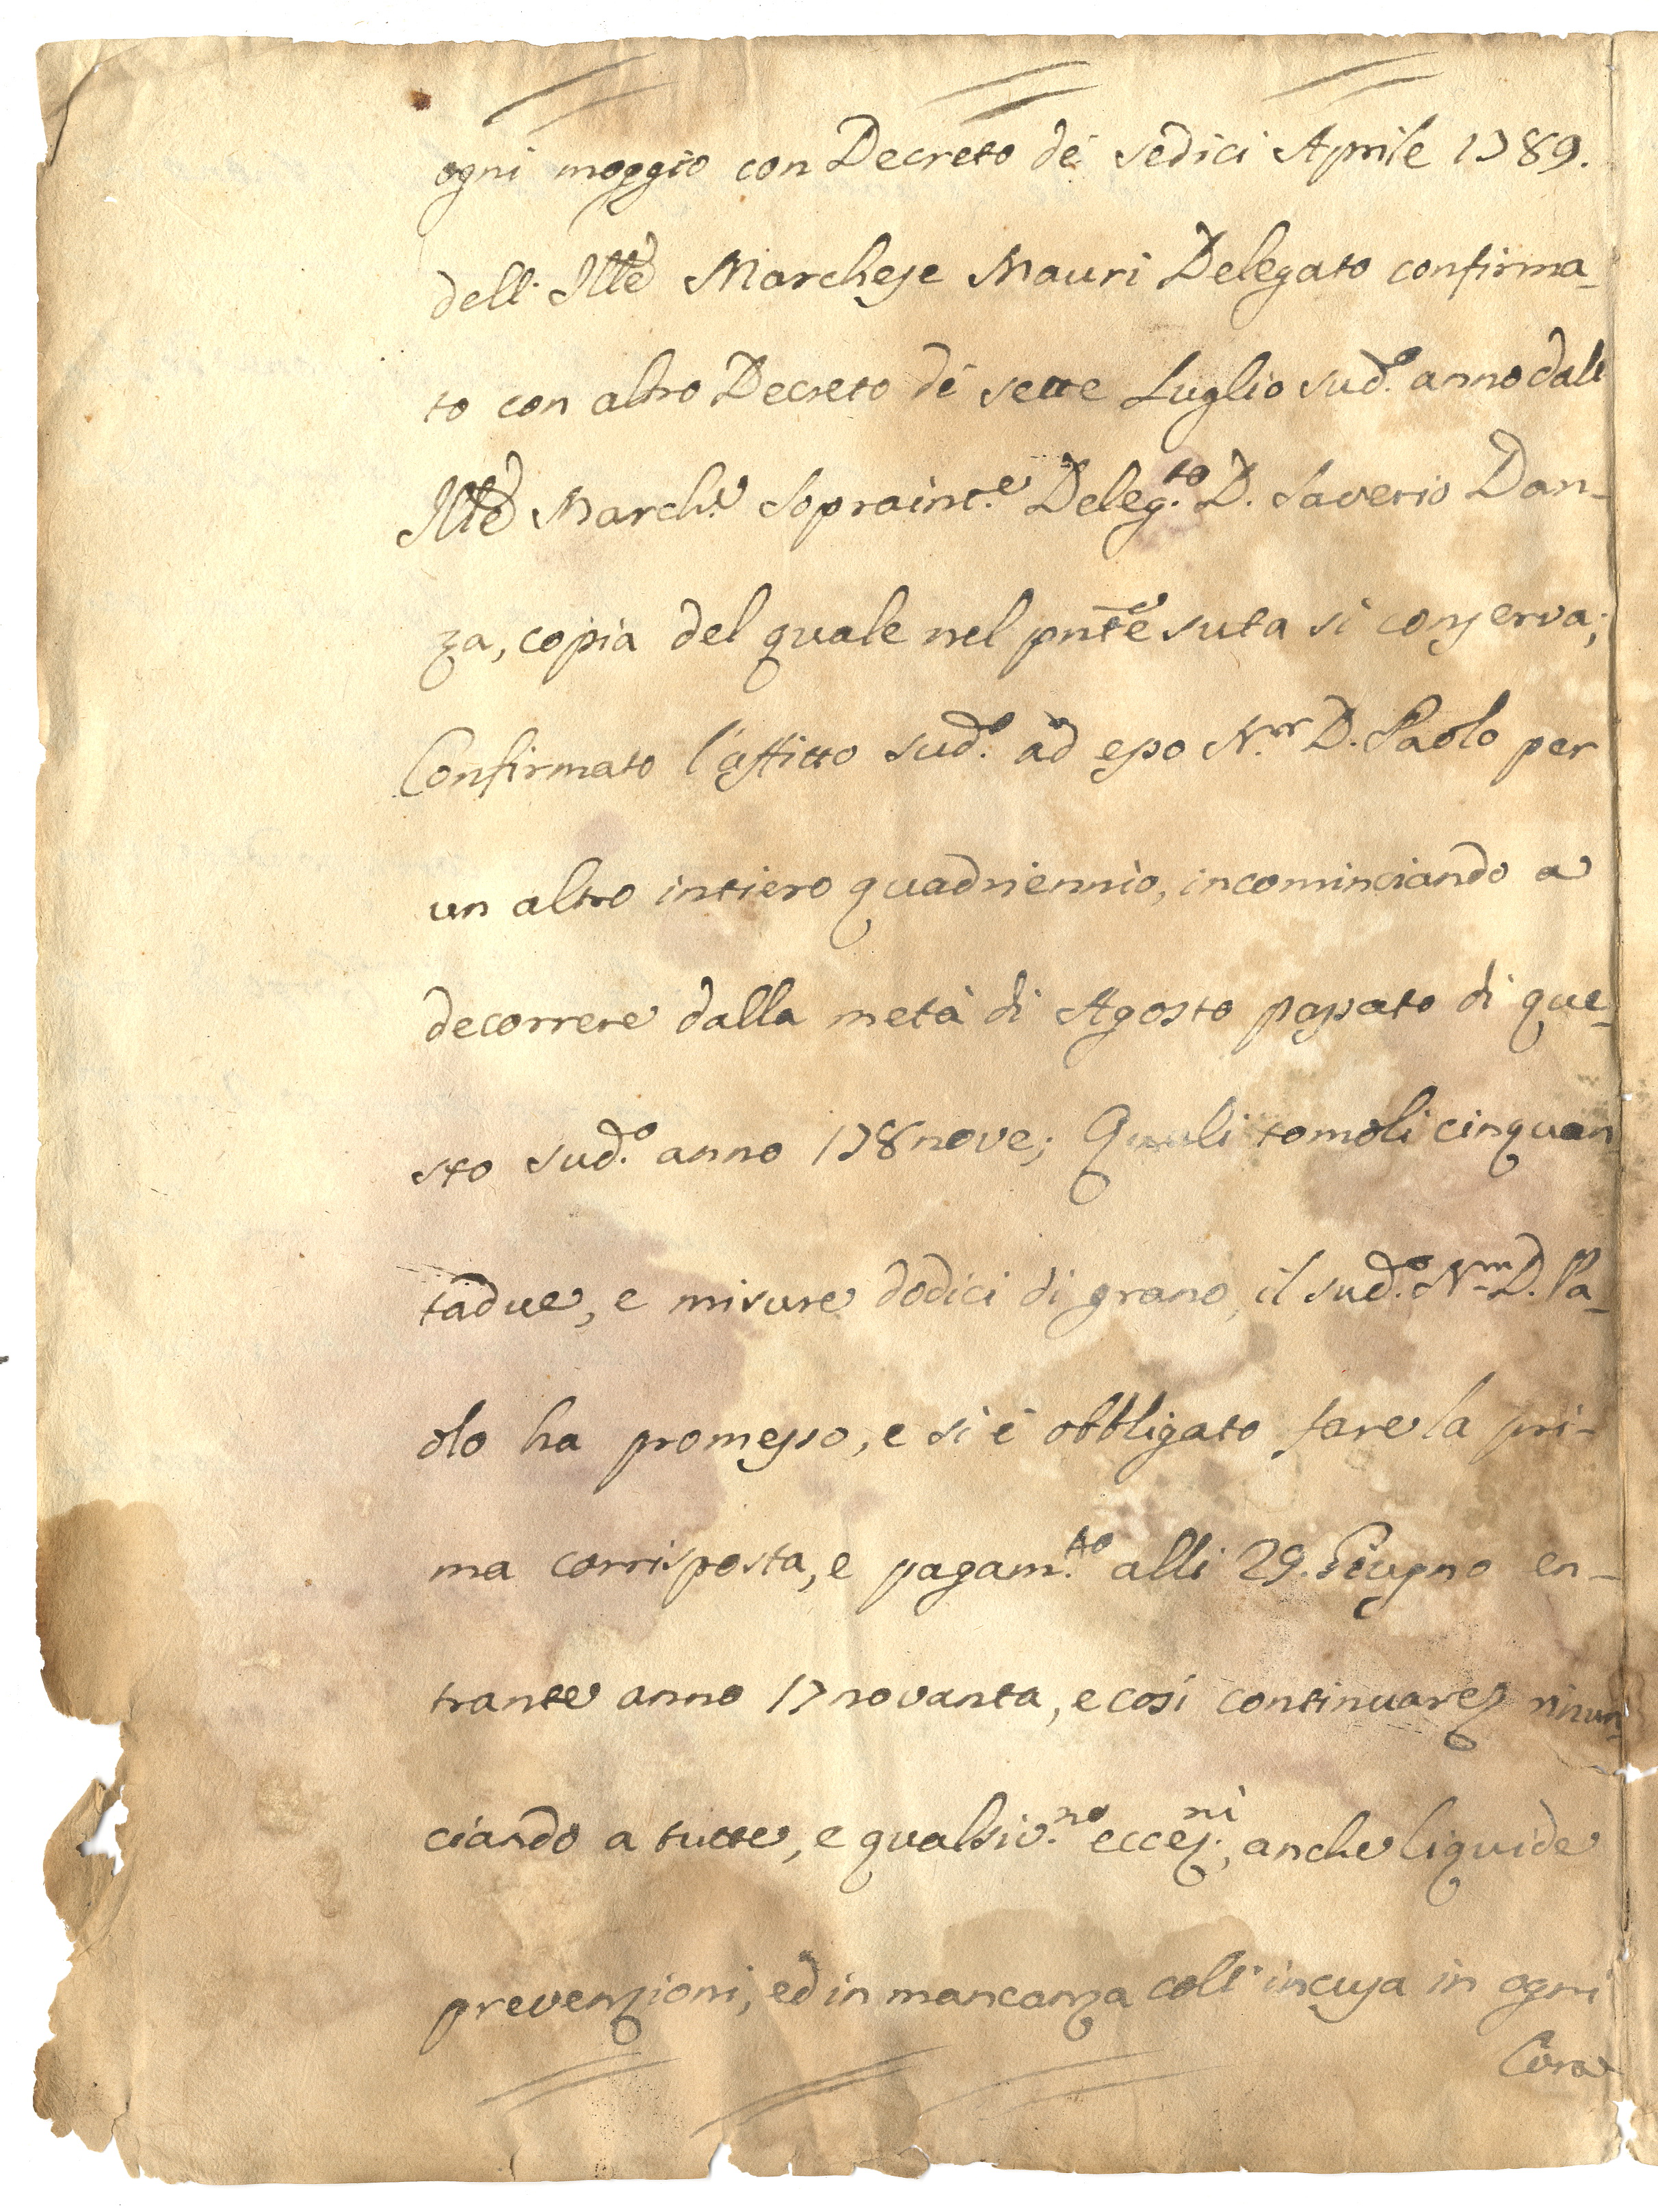 ogni moggio con Decreto de' sedici Aprile 1789.
dell' Ill.e Marchese Mauri Delegato confirma-
to con altro Decreto de' sette Luglio sud.o anno dall'
Ill.e March.e Sopraint.e Deleg.to D. Saverio Dan-
za, copia del quale nel pnte si conserva;
Confirmato l'affitto sud.o ad esso N.r D. Paolo per
un altro intiero quadriennio, incominciando a
decorrere dalla metà di Agosto passato di que-
sto sud.o anno 178nove; Quali tomoli cinquan
tadue, e misure dodici di grano, il sud.o N.r D. Pa-
olo ha promesso, e si è obbligato fare la pri-
ma corrisposta, e pagam.to alli 29. Giugno en-
trante anno 17novanta, e così continuare, rinun-
ciando a tutte, e qualsiv.no eccez.ni, anche liquide
prevenzioni, ed in mancanza coll' incusa in ogni